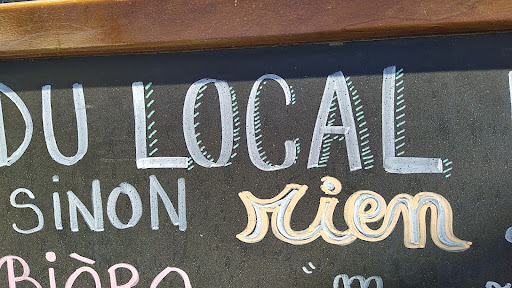 DU LOCAL
SINON rien